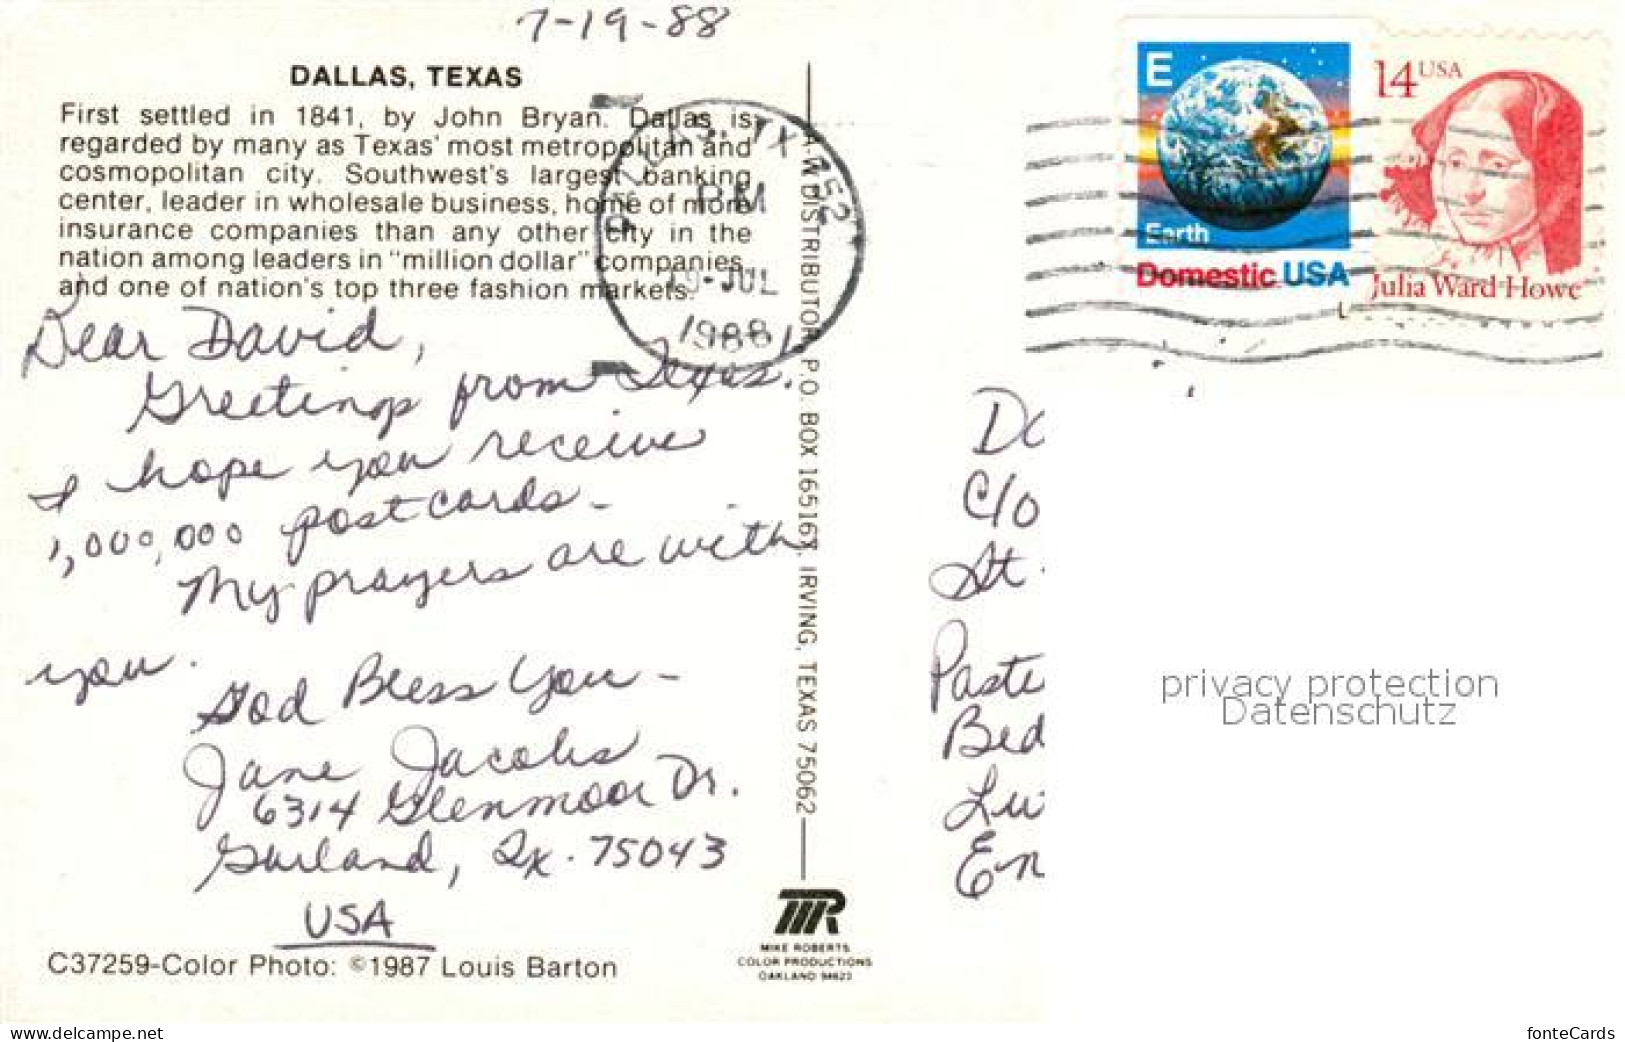 7-19-88
DALLAS, TEXAS
First settled in 1841, by John Bryan. Dallas is
regarded by many as Texas' most metropolitan and
cosmopolitan city. Southwest's largest banking
center, leader in wholesale business, home of more
insurance companies than any other city in the
nation among leaders in "million dollar" companies
and one of nation's top three fashion markets.
Dear David,
Greetings from Texas!
I hope you receive
1,000,000 postcards-
My prayers are with
you.
God Bless You-
Jane Jacobs
6314 Glenmoor Dr.
Garland, Tx. 75043
USA
C37259-Color Photo: ©1987 Louis Barton
A.W. DISTRIBUTOR, P.O. BOX 16516X, IRVING, TEXAS 75062
MIKE ROBERTS
COLOR PRODUCTIONS
OAKLAND 94623
TX 752
PM
JUL
1988
E
Earth
Domestic USA
14 USA
Julia Ward Howe
C/o
St.
Paste
Bed
Lu
En
privacy protection
Datenschutz
www.delcampe.net
fonteCards